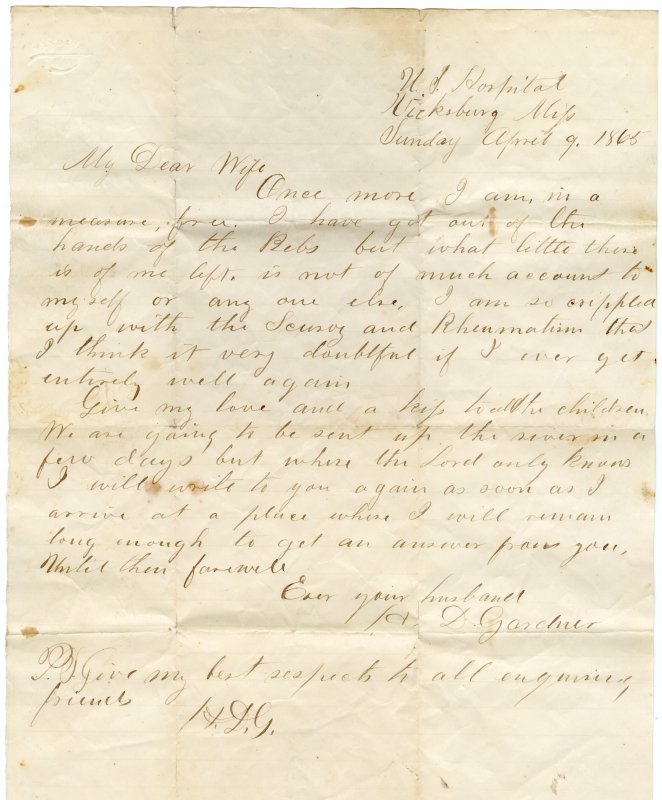 U. S. Hospital
Vicksburg Miss
Sunday April 9. 1865
My Dear Wife
Once more I am, in a
measure, free. I have got out of the
hands of the Rebs but what little there
is of me left. is not of much account to
myself or any one else, I am so crippled
up with the Scurvy and Rheumatism that
I think it very doubtful if I ever get
entirely well again
Give my love and a kiss to all the children.
We are going to be sent up the river in a
few days but where the Lord only knows
I will write to you again as soon as I
arrive at a place where I will remain
long enough to get an answer from you,
Until then farewell
Ever your husband
H. D. Gardner
P.S. Give my best respects to all enquiring
friends
H. D. G.